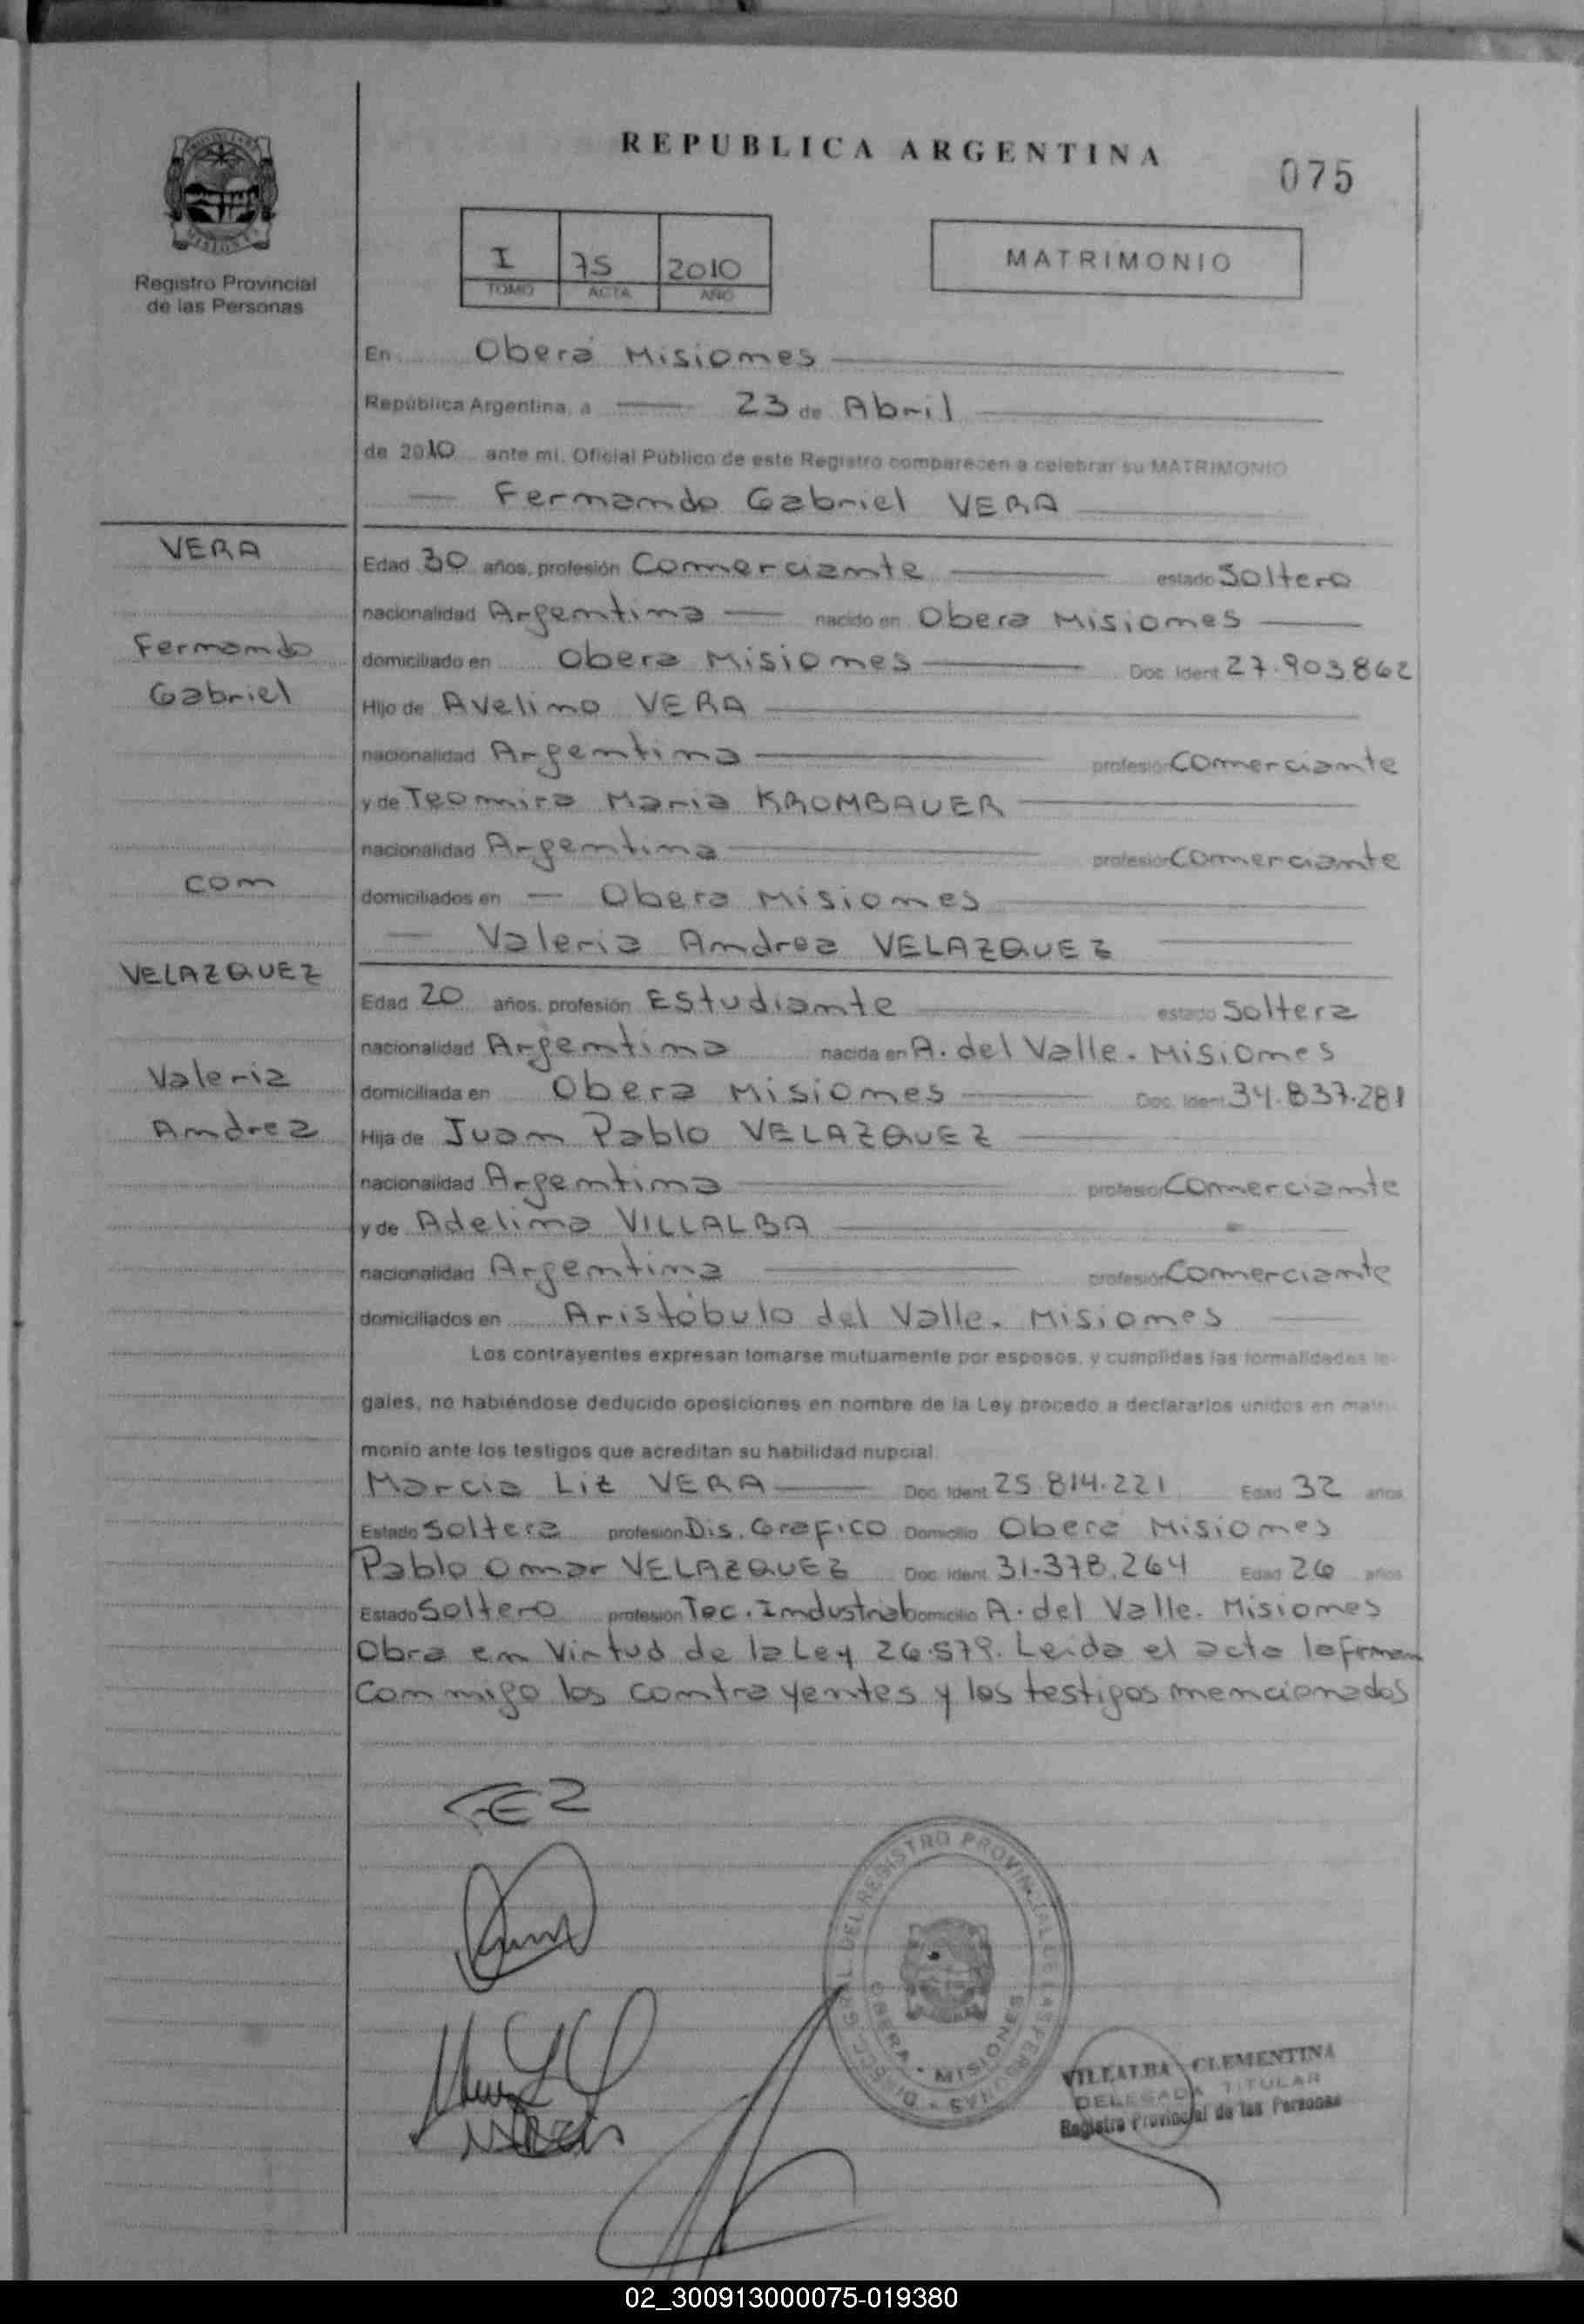 REPUBLICA ARGENTINA
075
Registro Provincial
de las Personas
I 75 2010
TOMO ACTA AÑO
MATRIMONIO
En Oberá Misiones
República Argentina, a 23 de Abril
de 2010 ante mi, Oficial Público de este Registro comparecen a celebrar su MATRIMONIO
Fernando Gabriel VERA
VERA
Fernando
Gabriel
con
VELAZQUEZ
Valeria
Andrea
Edad 30 años, profesión Comerciante estado Soltero
nacionalidad Argentina nacido en Obera Misiones
domiciliado en Obera Misiones Doc. Ident 27.903.862
Hijo de Avelino VERA
nacionalidad Argentina profesión Comerciante
y de Teonira Maria KROMBAUER
nacionalidad Argentina profesión Comerciante
domiciliados en Obera Misiones
Valeria Andrea VELAZQUEZ
Edad 20 años, profesión Estudiante estado Soltera
nacionalidad Argentina nacida en A. del Valle. Misiones
domiciliada en Obera Misiones Doc. Ident 34.837.281
Hija de Juan Pablo VELAZQUEZ
nacionalidad Argentina profesión Comerciante
y de Adelina VILLALBA
nacionalidad Argentina profesión Comerciante
domiciliados en Aristóbulo del Valle. Misiones
Los contrayentes expresan tomarse mutuamente por esposos, y cumplidas las formalidades le-
gales, no habiéndose deducido oposiciones en nombre de la Ley procedo a declararlos unidos en matri-
monio ante los testigos que acreditan su habilidad nupcial
Marcia Liz VERA Doc. Ident 25.814.221 Edad 32 años
Estado Soltera profesión Dis. Grafico Domicilio Obera Misiones
Pablo Omar VELAZQUEZ Doc. Ident 31.378.264 Edad 26 años
Estado Soltero profesión Tec. Industrial Domicilio A. del Valle. Misiones
Obra en Virtud de la Ley 26.579. Leida el acta la firman
Conmigo los contrayentes y los testigos mencionados
DEL REGISTRO PROVINCIAL DE LAS PERSONAS
OBERA - MISIONES
VILLALBA CLEMENTINA
DELEGADA TITULAR
Registro Provincial de las Personas
02_300913000075-019380